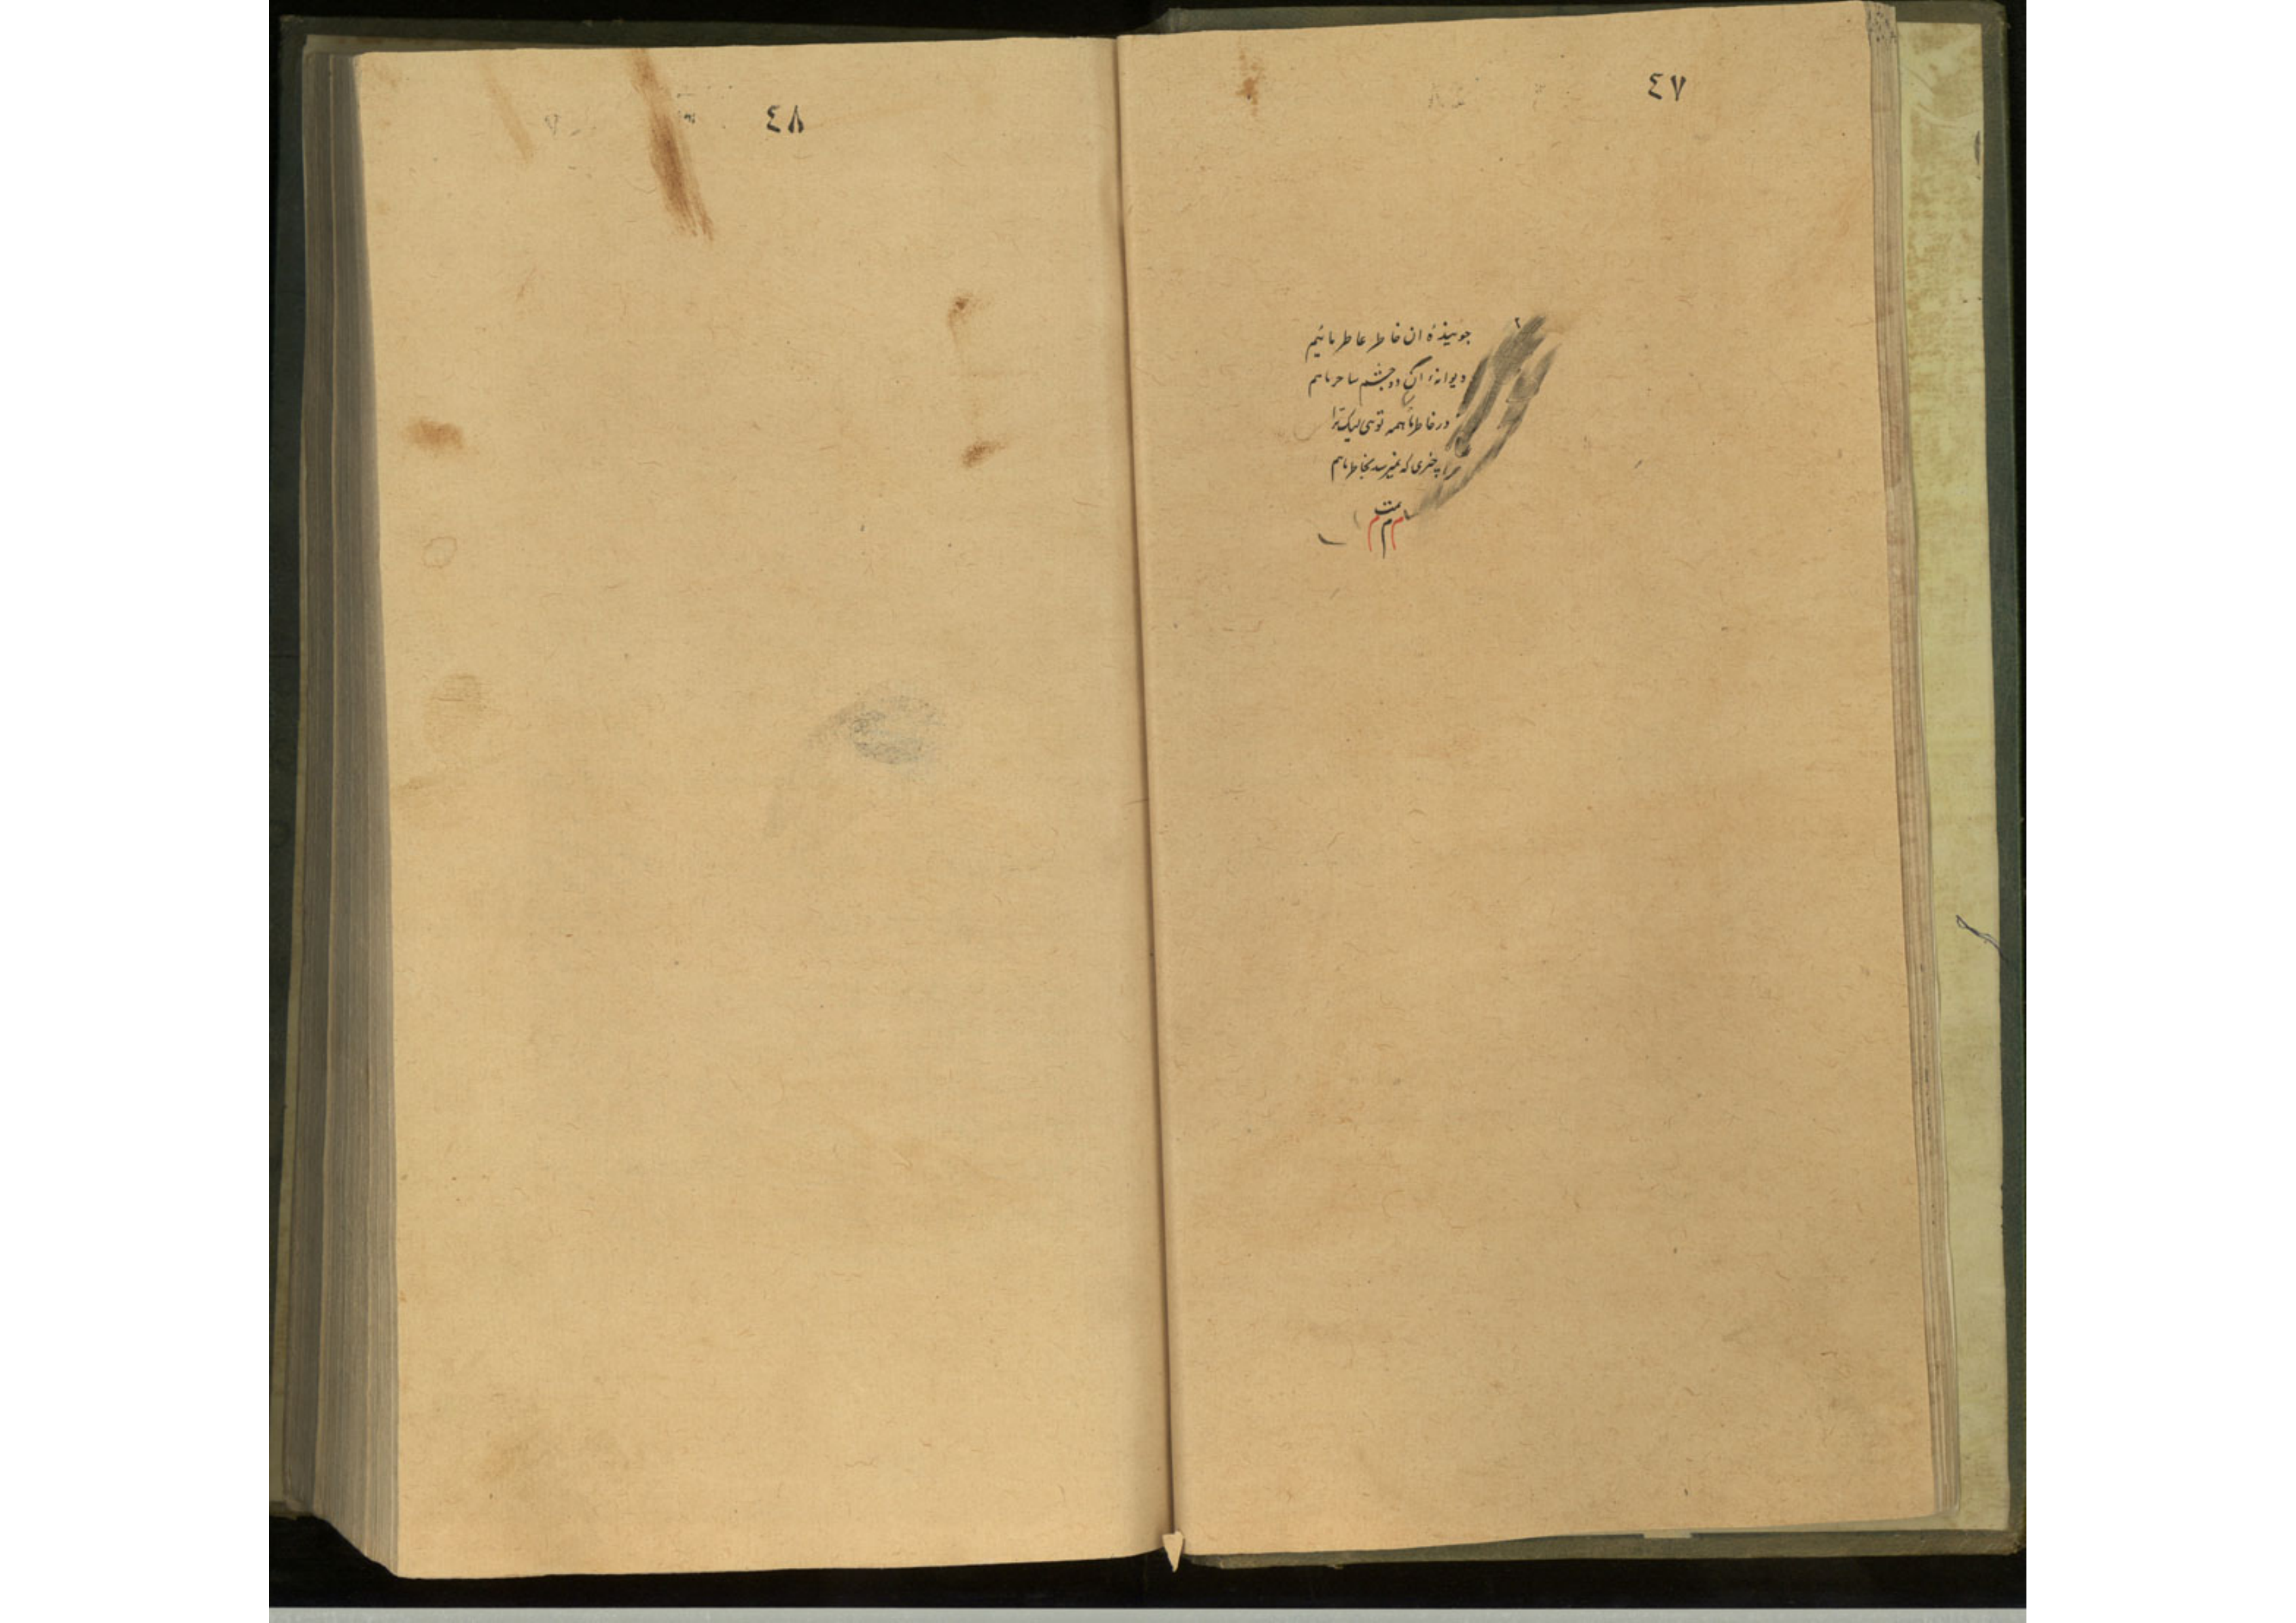 ٤٧
جوینده ان خاطر عاطر مائیم
دیوانه آن دو چشم ساحر مائیم
در خاطر ما همه توئی لیک ترا
چیزی که نمیرسد بخاطر مائیم
تمت
م م م
٤٨